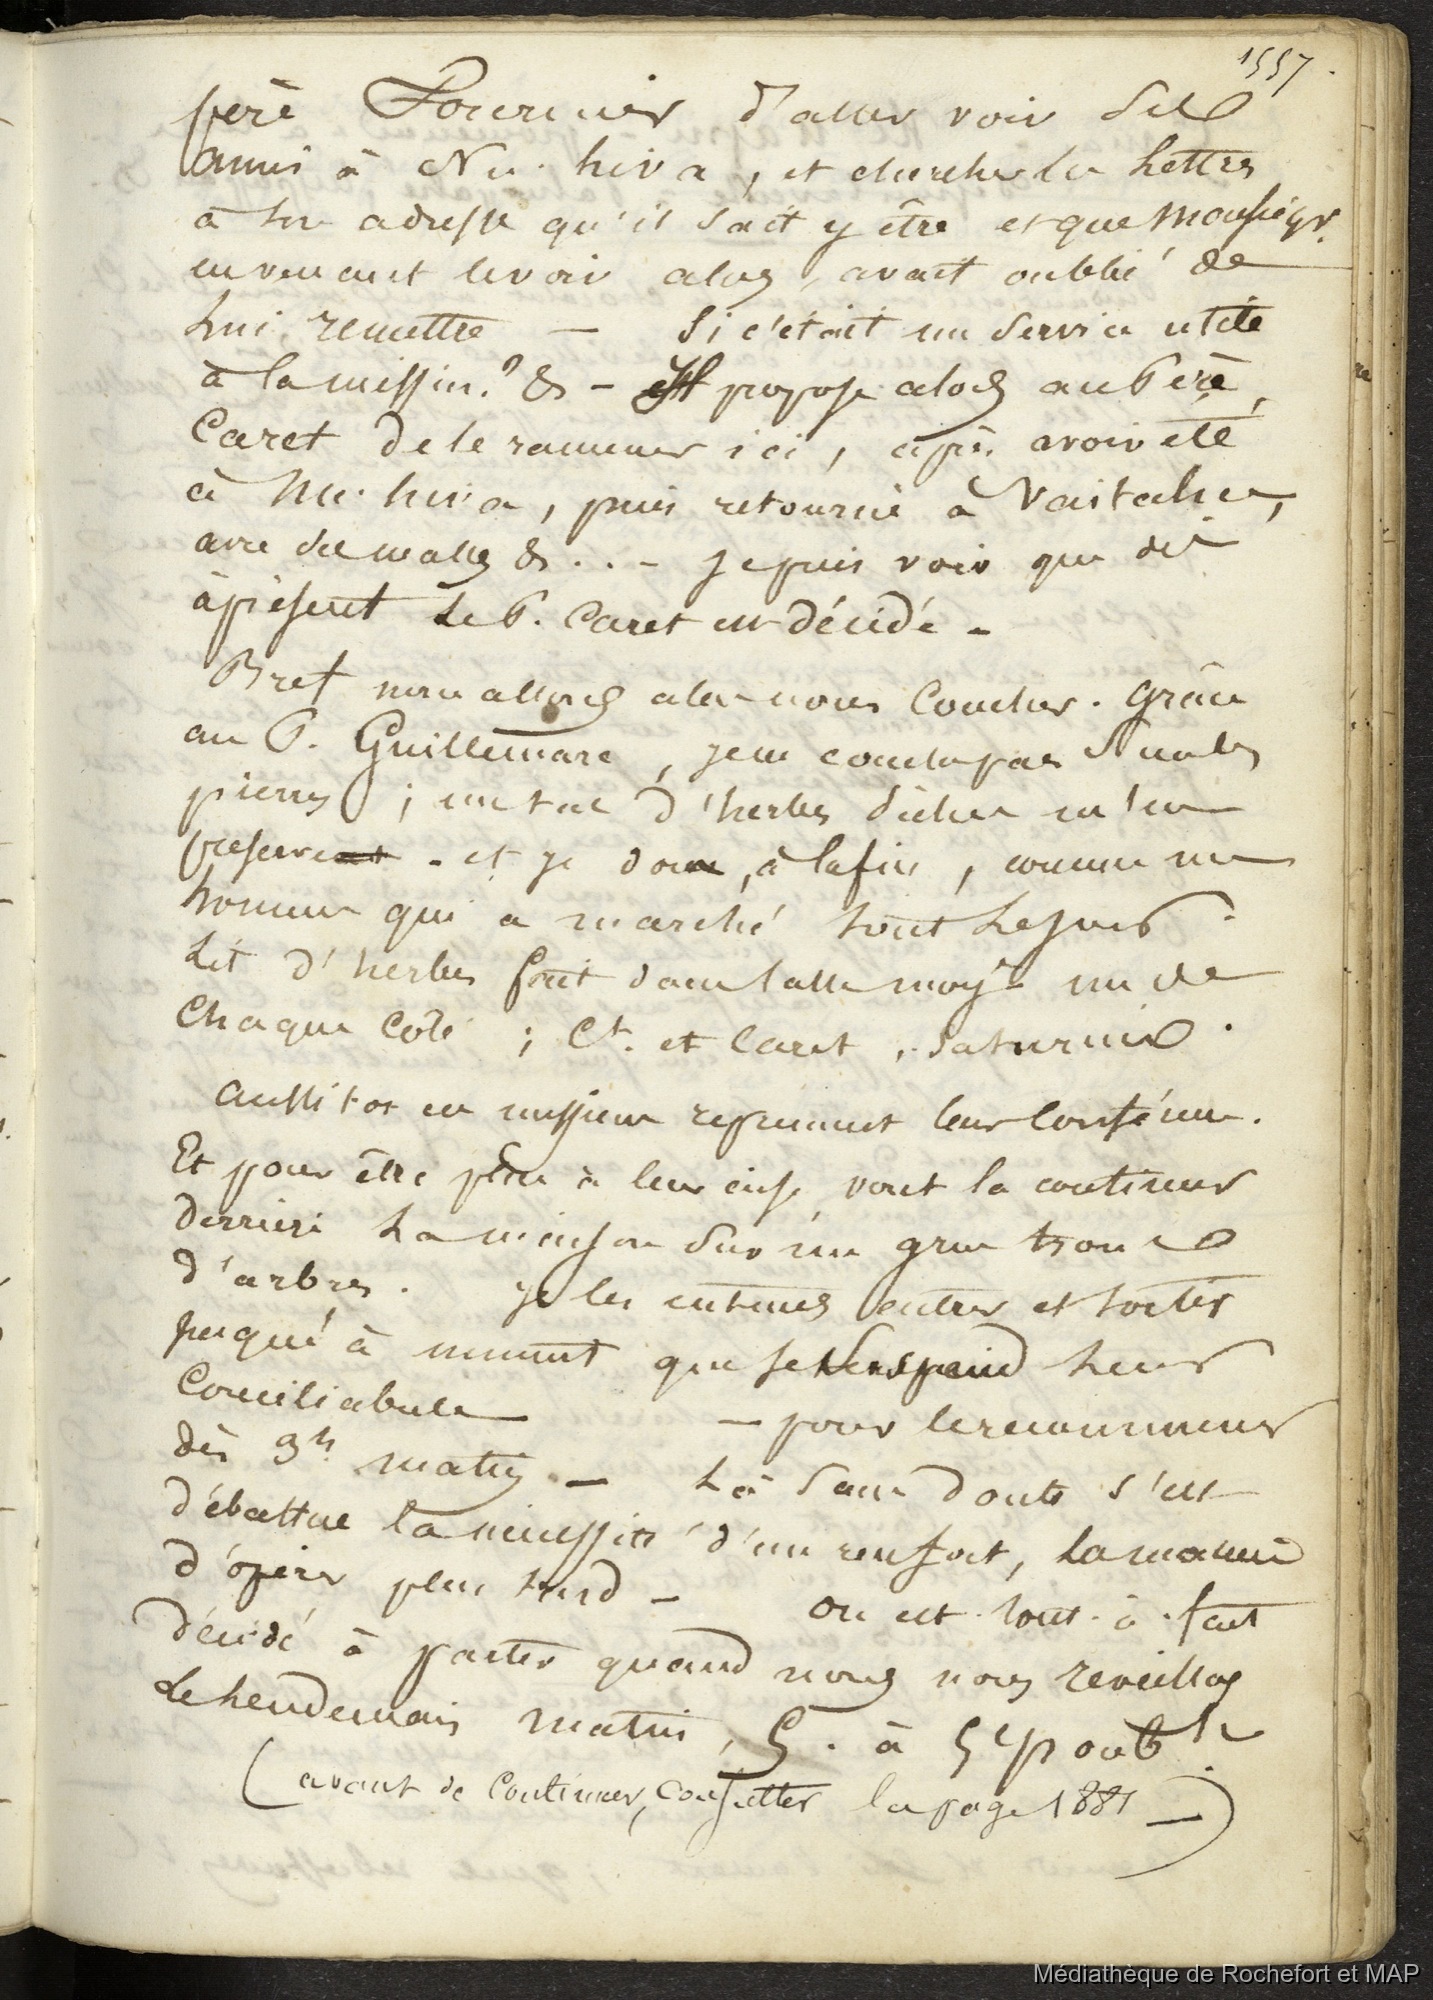 1557.
père Fournier d'aller voir ses
amis à Nu.hiva, et chercher les lettres
à son adresse qu'il sait y être et que Monseigr.
en venant le voir alors, avait oublié de
lui remettre — Si c'était un service utile
à la mission? & — Il propose alors au Père
Caret de le ramener ici, après avoir été
à Nu.hiva, puis retourné à Vaitahu,
avec ses malles &... — Je puis voir que dès
à présent le P. Caret est décidé —
Bref nous allons aller nous coucher. Grâce
au P. Guillemard, je ne couche pas sur les
pierres; un tas d'herbes sèches m'en
préserve — et je dors, à la fin, comme un
homme qui a marché tout le jour.
Lit d'herbes fait dans salle moy. un de
chaque côté; Ct. et Caret, Saturnin.
Aussitôt ces messieurs reprennent leur conférence.
Et pour être plus à leur aise vont la continuer
derrière la maison sur un gros tronc
d'arbres. Je les entends entrer et sortir
jusqu'à minuit que se suspend leur
conciliabule — pour le recommencer
dès 3h matin — Là sans doute s'est
débattue la nécessité d'un renfort, la manière
d'opérer plus tard — On est tout-à-fait
décidé à partir quand nous nous réveillons
le lendemain matin, 5. à
(avant de continuer, consulter la page 1881 —)
Médiathèque de Rochefort et MAP